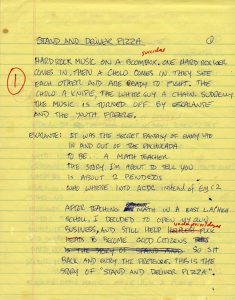 STAND AND DELIVER PIZZA 1
succedes
HARD ROCK MUSIC ON A BOOMBOX. ONE HARD ROCKER
COMES IN, THEN A CHOLO COMES IN. THEY SEE
1 EACH OTHER AND ARE READY TO FIGHT. THE
CHOLO A KNIFE, THE WHITE GUY A CHAIN. SUDDENLY
THE MUSIC IS TURNED OFF BY ESCALANTE
AND THE YOUTH FREEZE.
IT WAS THE SECRET FANTASY OF EVERY
IN AND OUT OF THE
TO BE A MATH TEACHER
THE STORY I'M ABOUT TO TELL YOU
IS ABOUT 2 PENDEJOS
WHO WHERE INTO ACDC INSTEAD OF
AFTER TEACHING MATH IN A EAST LA HIGH
SCHOOL I DECIDED TO OPEN MY OWN
underprivileged
BUSINESS, AND STILL HELP
TO BECOME GOOD CITIZENS.
SIT
BACK AND ENJOY THE PRETENSE. THIS IS THE
STORY OF "STAND AND DELIVER PIZZA".